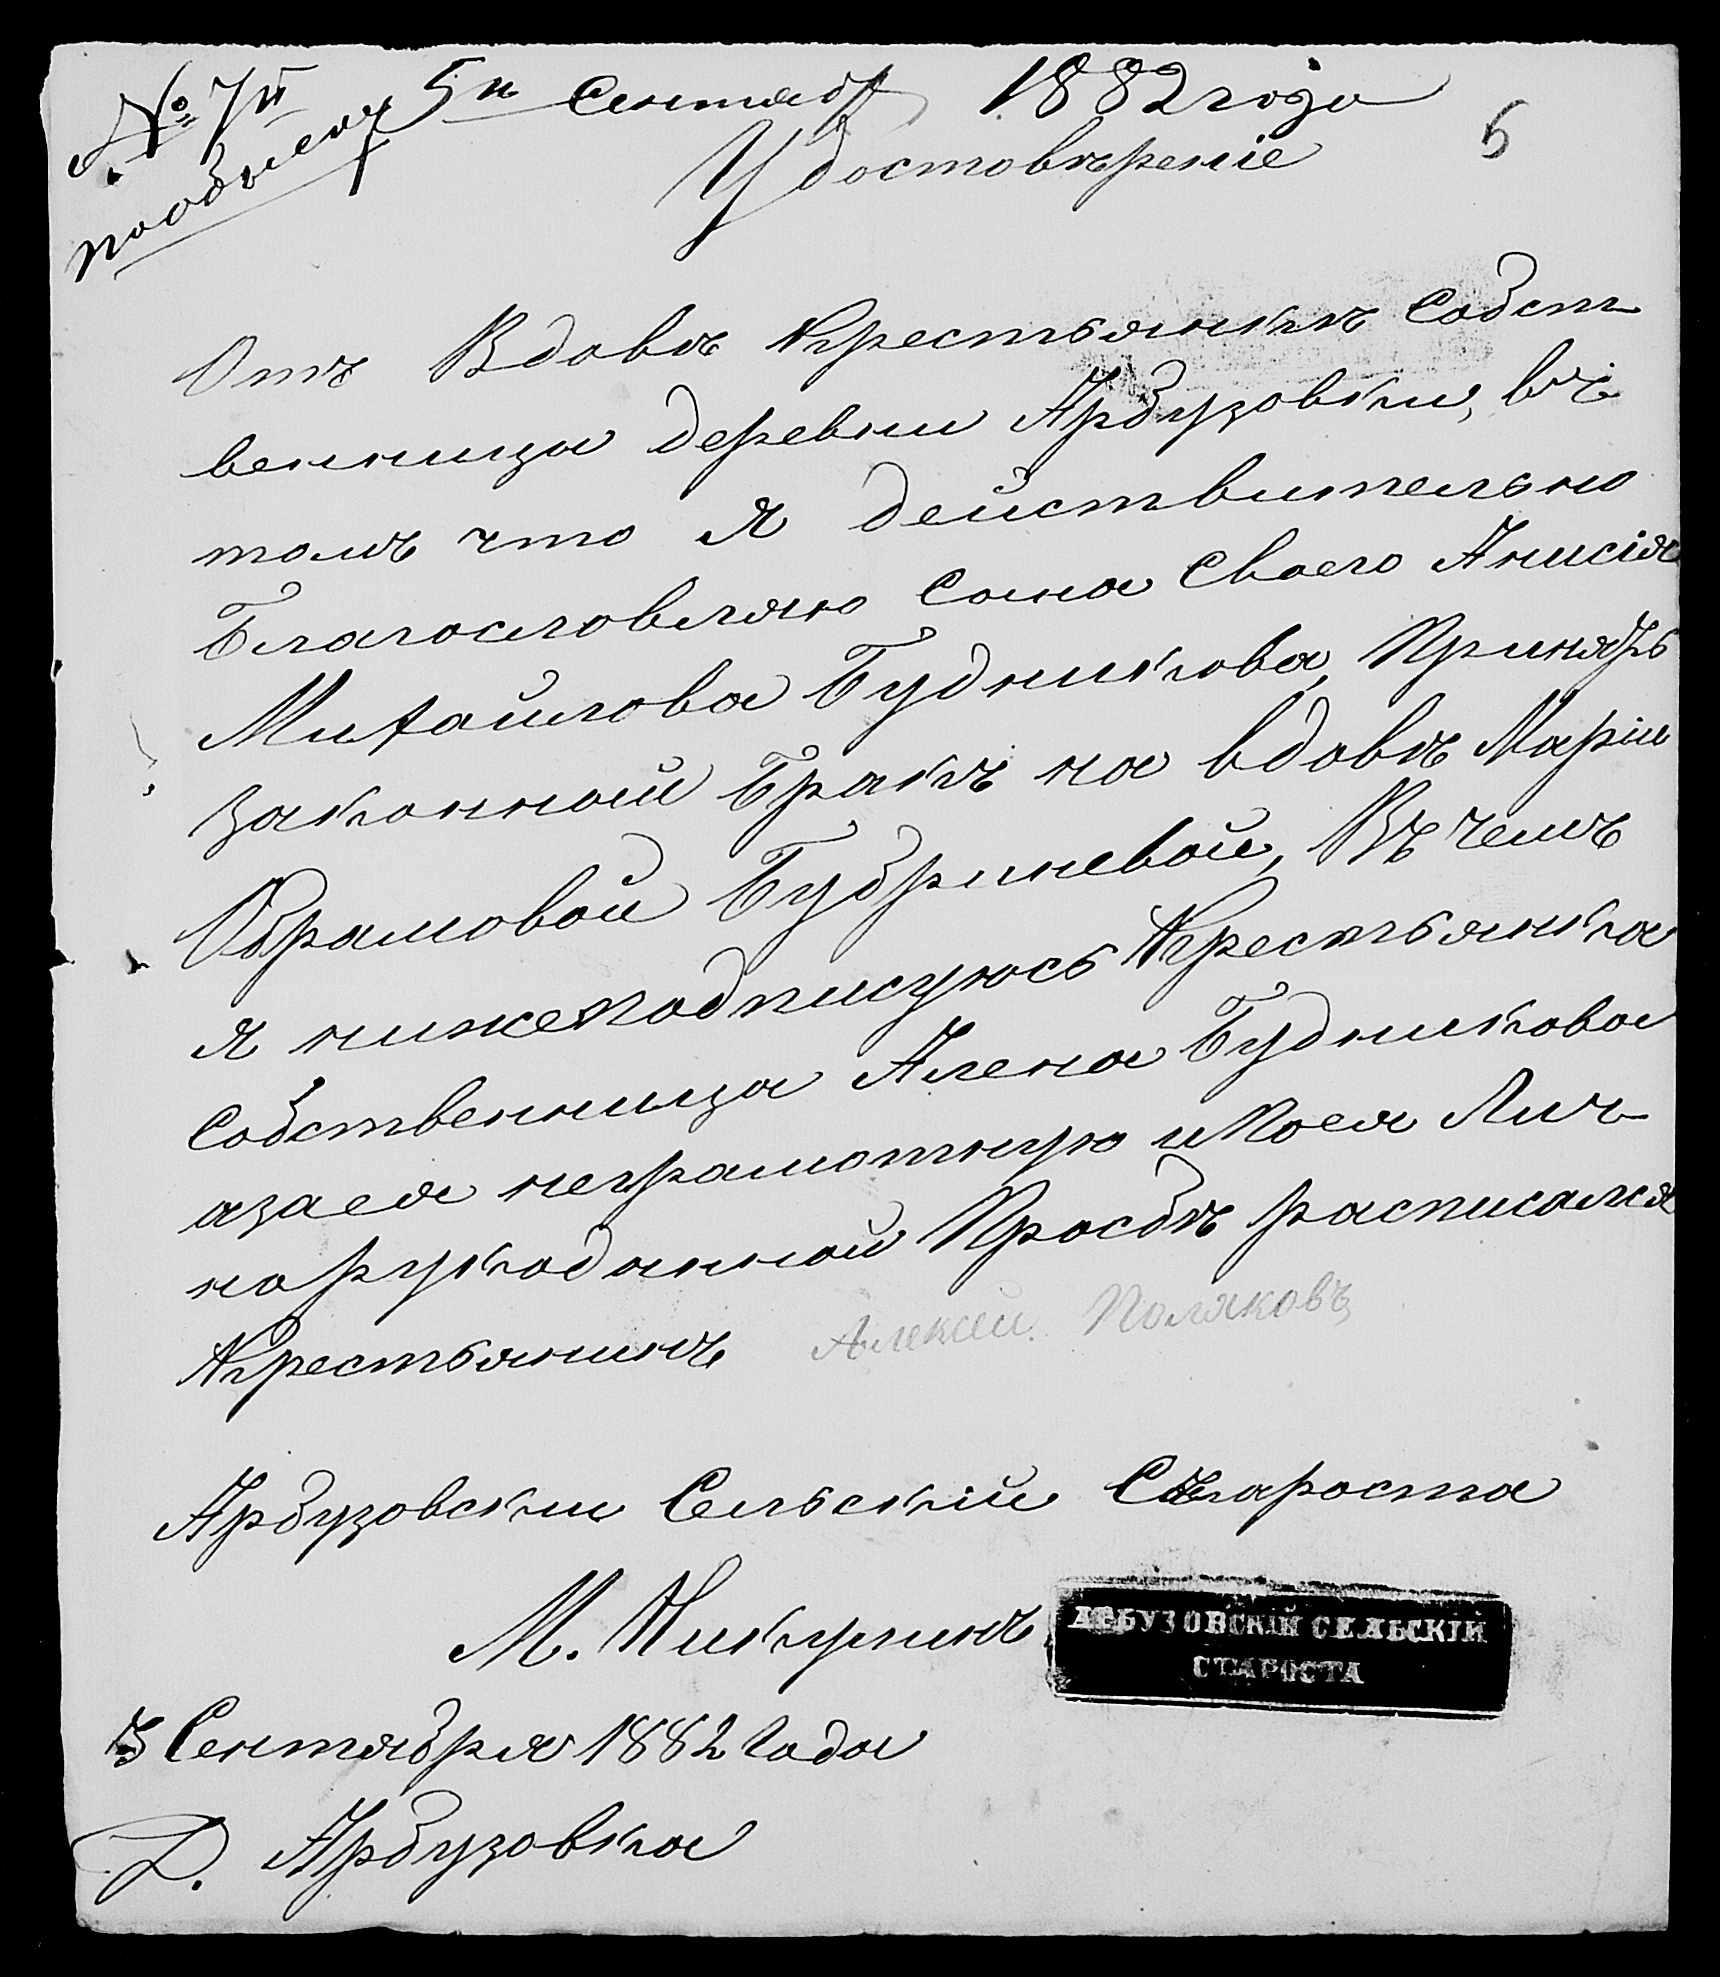 № 7й 5го Сентября 1882 года
по обыску
5
Удостовѣреніе
Отъ Вдовѣ Крестьянкѣ Собст
венница деревни Арбузовки, въ
томъ что я действительно
Благословляю Сына Своего Анисія
Михайлова Будникова, Принять
законной Бракъ на вдовѣ Маріи
Обрамовой Бубриневой, Въ чемъ
я нижеподписуюсь Крестьянка
Собственница Алена Будникова
азаея неграмотную ипоея Лич
норукоданной Просбѣ расписался
Крестьянинъ Алексей Поляковъ
Арбузовский Сельскій Староста
М. Никулинъ
АРБУЗОВСКІЙ СЕЛЬСКІЙ
СТАРОСТА
3 Сентября 1882 Года
Д. Арбузовка